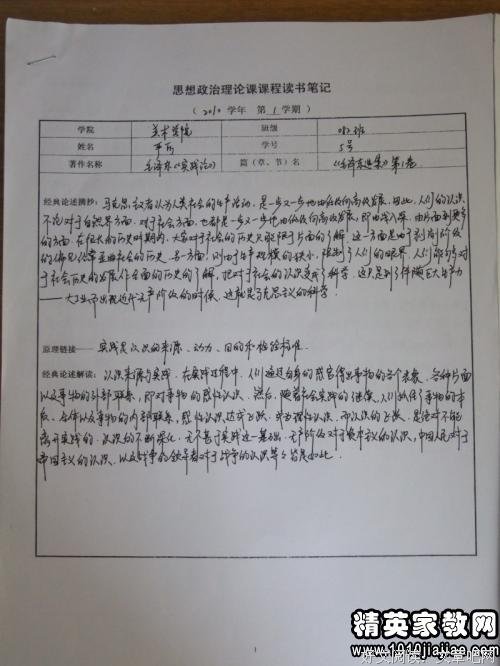 思想政治理论课课程读书笔记
（2010 学年 第 1 学期）
学院 美术学院 班级
姓名 学号 5号
著作名称 毛泽东《实践论》 篇（章、节）名 《毛泽东选集》第1卷
经典论述摘抄：马克思主义者认为人类社会的生产活动，是一步又一步地由低级向高级发展，因此，人们的认识，
不论对于自然界方面，对于社会方面，也都是一步又一步地由低级向高级发展，即由浅入深，由片面到更多
的方面，在很长的历史时期内，大家对于社会的历史只能限于片面的了解，这一方面是由于剥削阶级
的偏见经常歪曲社会的历史，另一方面，则由于生产规模的狭小，限制了人们的眼界，人们能够对
于社会历史的发展作全面的历史的了解，把对于社会的认识变成了科学，这只是到了伴随巨大生产力
——大工业而出现近代无产阶级的时候，这就是马克思主义的科学。
原理链接—— 实践是认识的来源、动力、目的和检验标准。
经典论述解读：认识来源于实践，在实践过程中，人们通过自身的感官得出事物的各个表象，各种片面
以及事物的外部联系，即对事物的感性认识。然后，随着社会实践的继续，人们抓住了事物的本
质、全体以及事物的内部联系，感性认识达成飞跃，成为理性认识，而认识的飞跃，是绝对不能
离开实践的，认识的不断深化，无不基于实践这一基础，无产阶级对于资本主义的认识，中国人民对于
帝国主义的认识，以及战争的领导者对于战争的认识等等皆是如此。
1
精英家教网
www.1010jiajiao.com
好文阅读，文章吧网